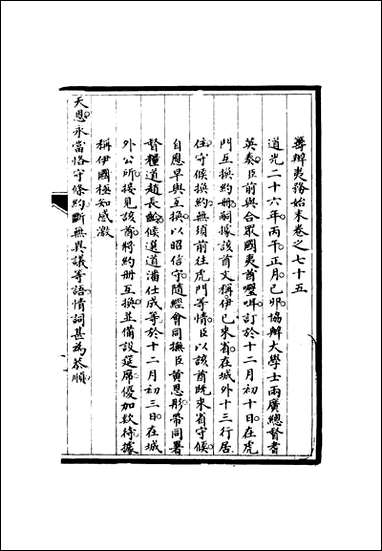 籌辦夷務始末卷之七十五
道光二十六年丙午正月己卯協辦大學士兩廣總督耆
英奏臣前與合衆國夷酋𠼤㖇訂於十二月初十日在虎
門互換約冊嗣據該酋文稱伊已來省在城外十三行居
住守候換約無須前往虎門等情臣以該酋既來省守候
自應早與互換以昭信守隨經會同撫臣黃恩彤帶同署
督糧道趙長齡候選道潘仕成等於十二月初三日在城
外公所接見該酋將約冊互換並備設筵席優加款待據
稱伊國極知感激
天恩永當恪守條約斷無異議等語情詞甚為恭順